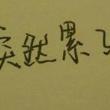 突然累了